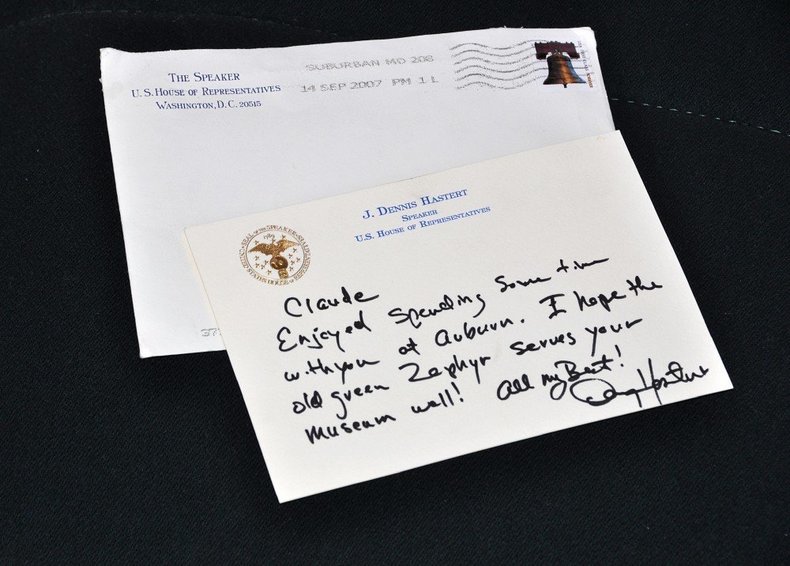 THE SPEAKER
U.S. HOUSE OF REPRESENTATIVES
WASHINGTON, D.C. 20515
SUBURBAN MD 208
14 SEP 2007 PM 1 L
J. DENNIS HASTERT
SPEAKER
U.S. HOUSE OF REPRESENTATIVES
1789
Claude
Enjoyed spending some time
with you at Auburn. I hope the
old green Zephyr serves your
museum well! All my Best!
Denny Hastert